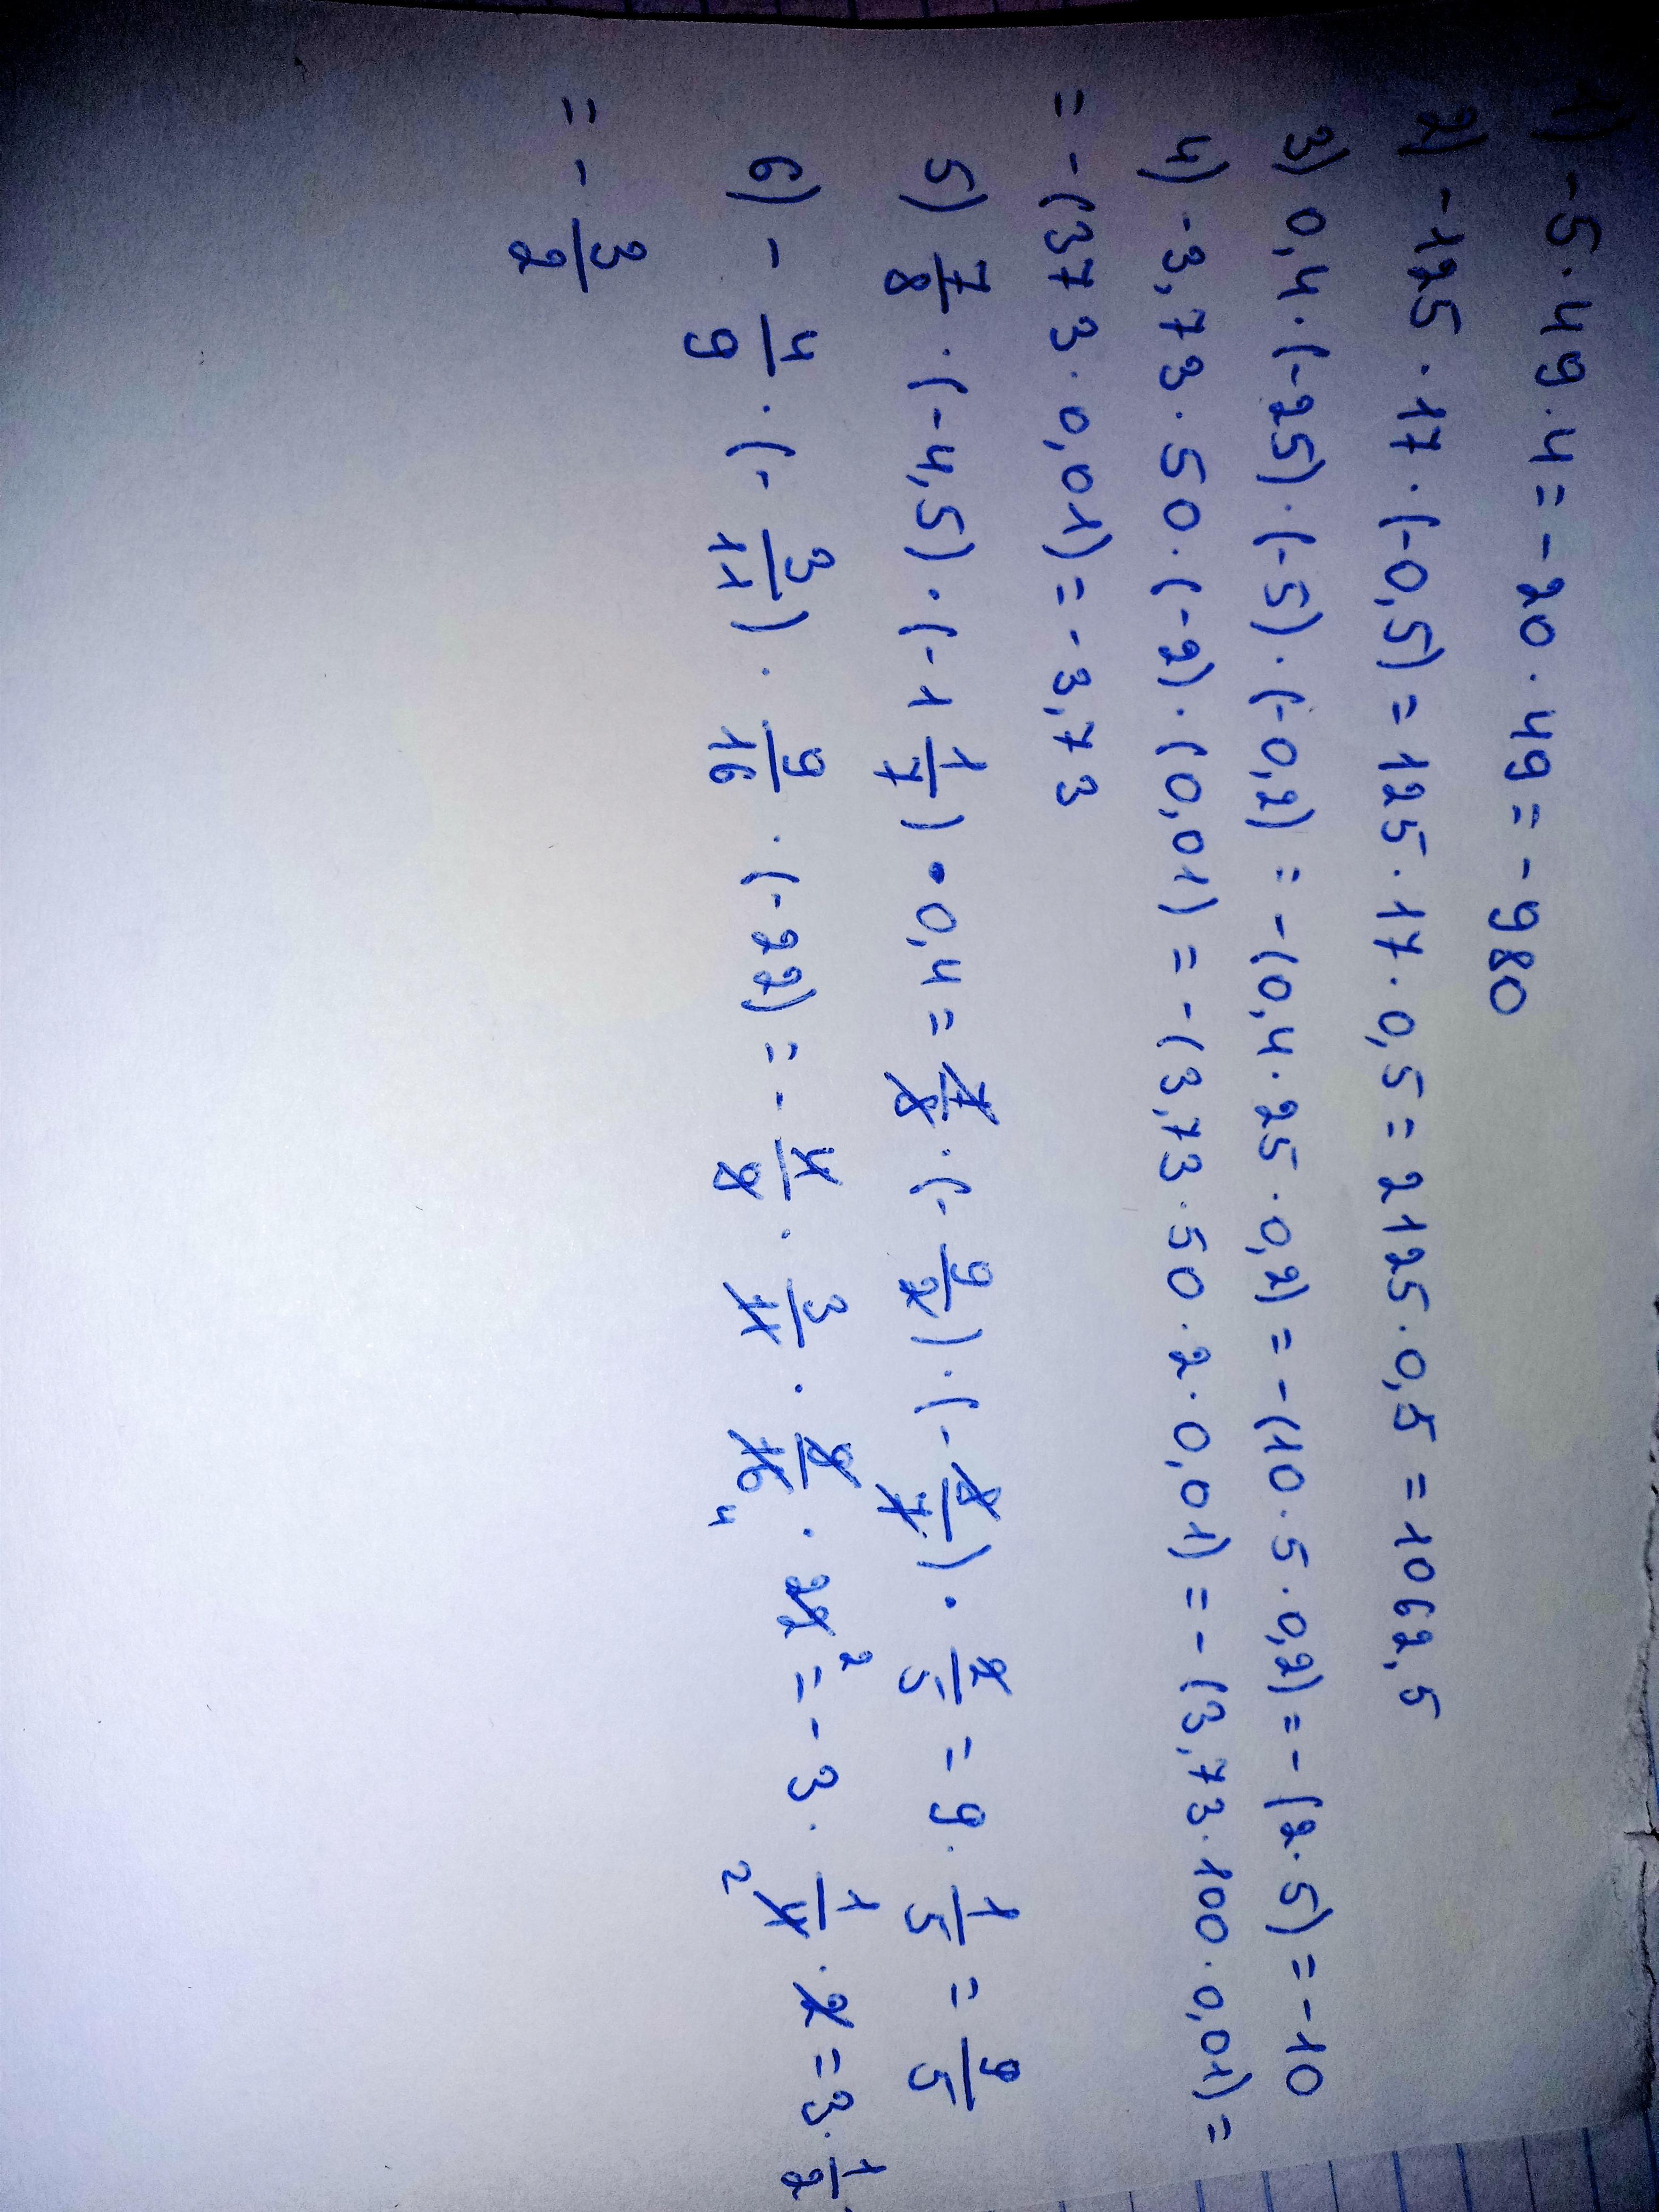 1) -5 · 49 · 4 = -20 · 49 = -980
2) -125 · 17 · (-0,5) = 125 · 17 · 0,5 = 2125 · 0,5 = 1062,5
3) 0,4 · (-25) · (-5) · (-0,2) = -(0,4 · 25 · 0,2) = -(10 · 5 · 0,2) = -(2 · 5) = -10
4) -3,73 · 50 · (-2) · (0,01) = -(3,73 · 50 · 2 · 0,01) = -(3,73 · 100 · 0,01) =
= -(373 · 0,01) = -3,73
5) 7/8 · (-4,5) · (-1 1/7) · 0,4 = 7/8 · (-9/2) · (-8/7) · 2/5 = 9 · 1/5 = 9/5
6) - 4/9 · (- 3/11) · 9/16 · (-22) = - 4/9 · 3/11 · 9/16 4 · 22 2 = -3 · 1/4 2 · 2 = 3 · 1/2
= - 3/2